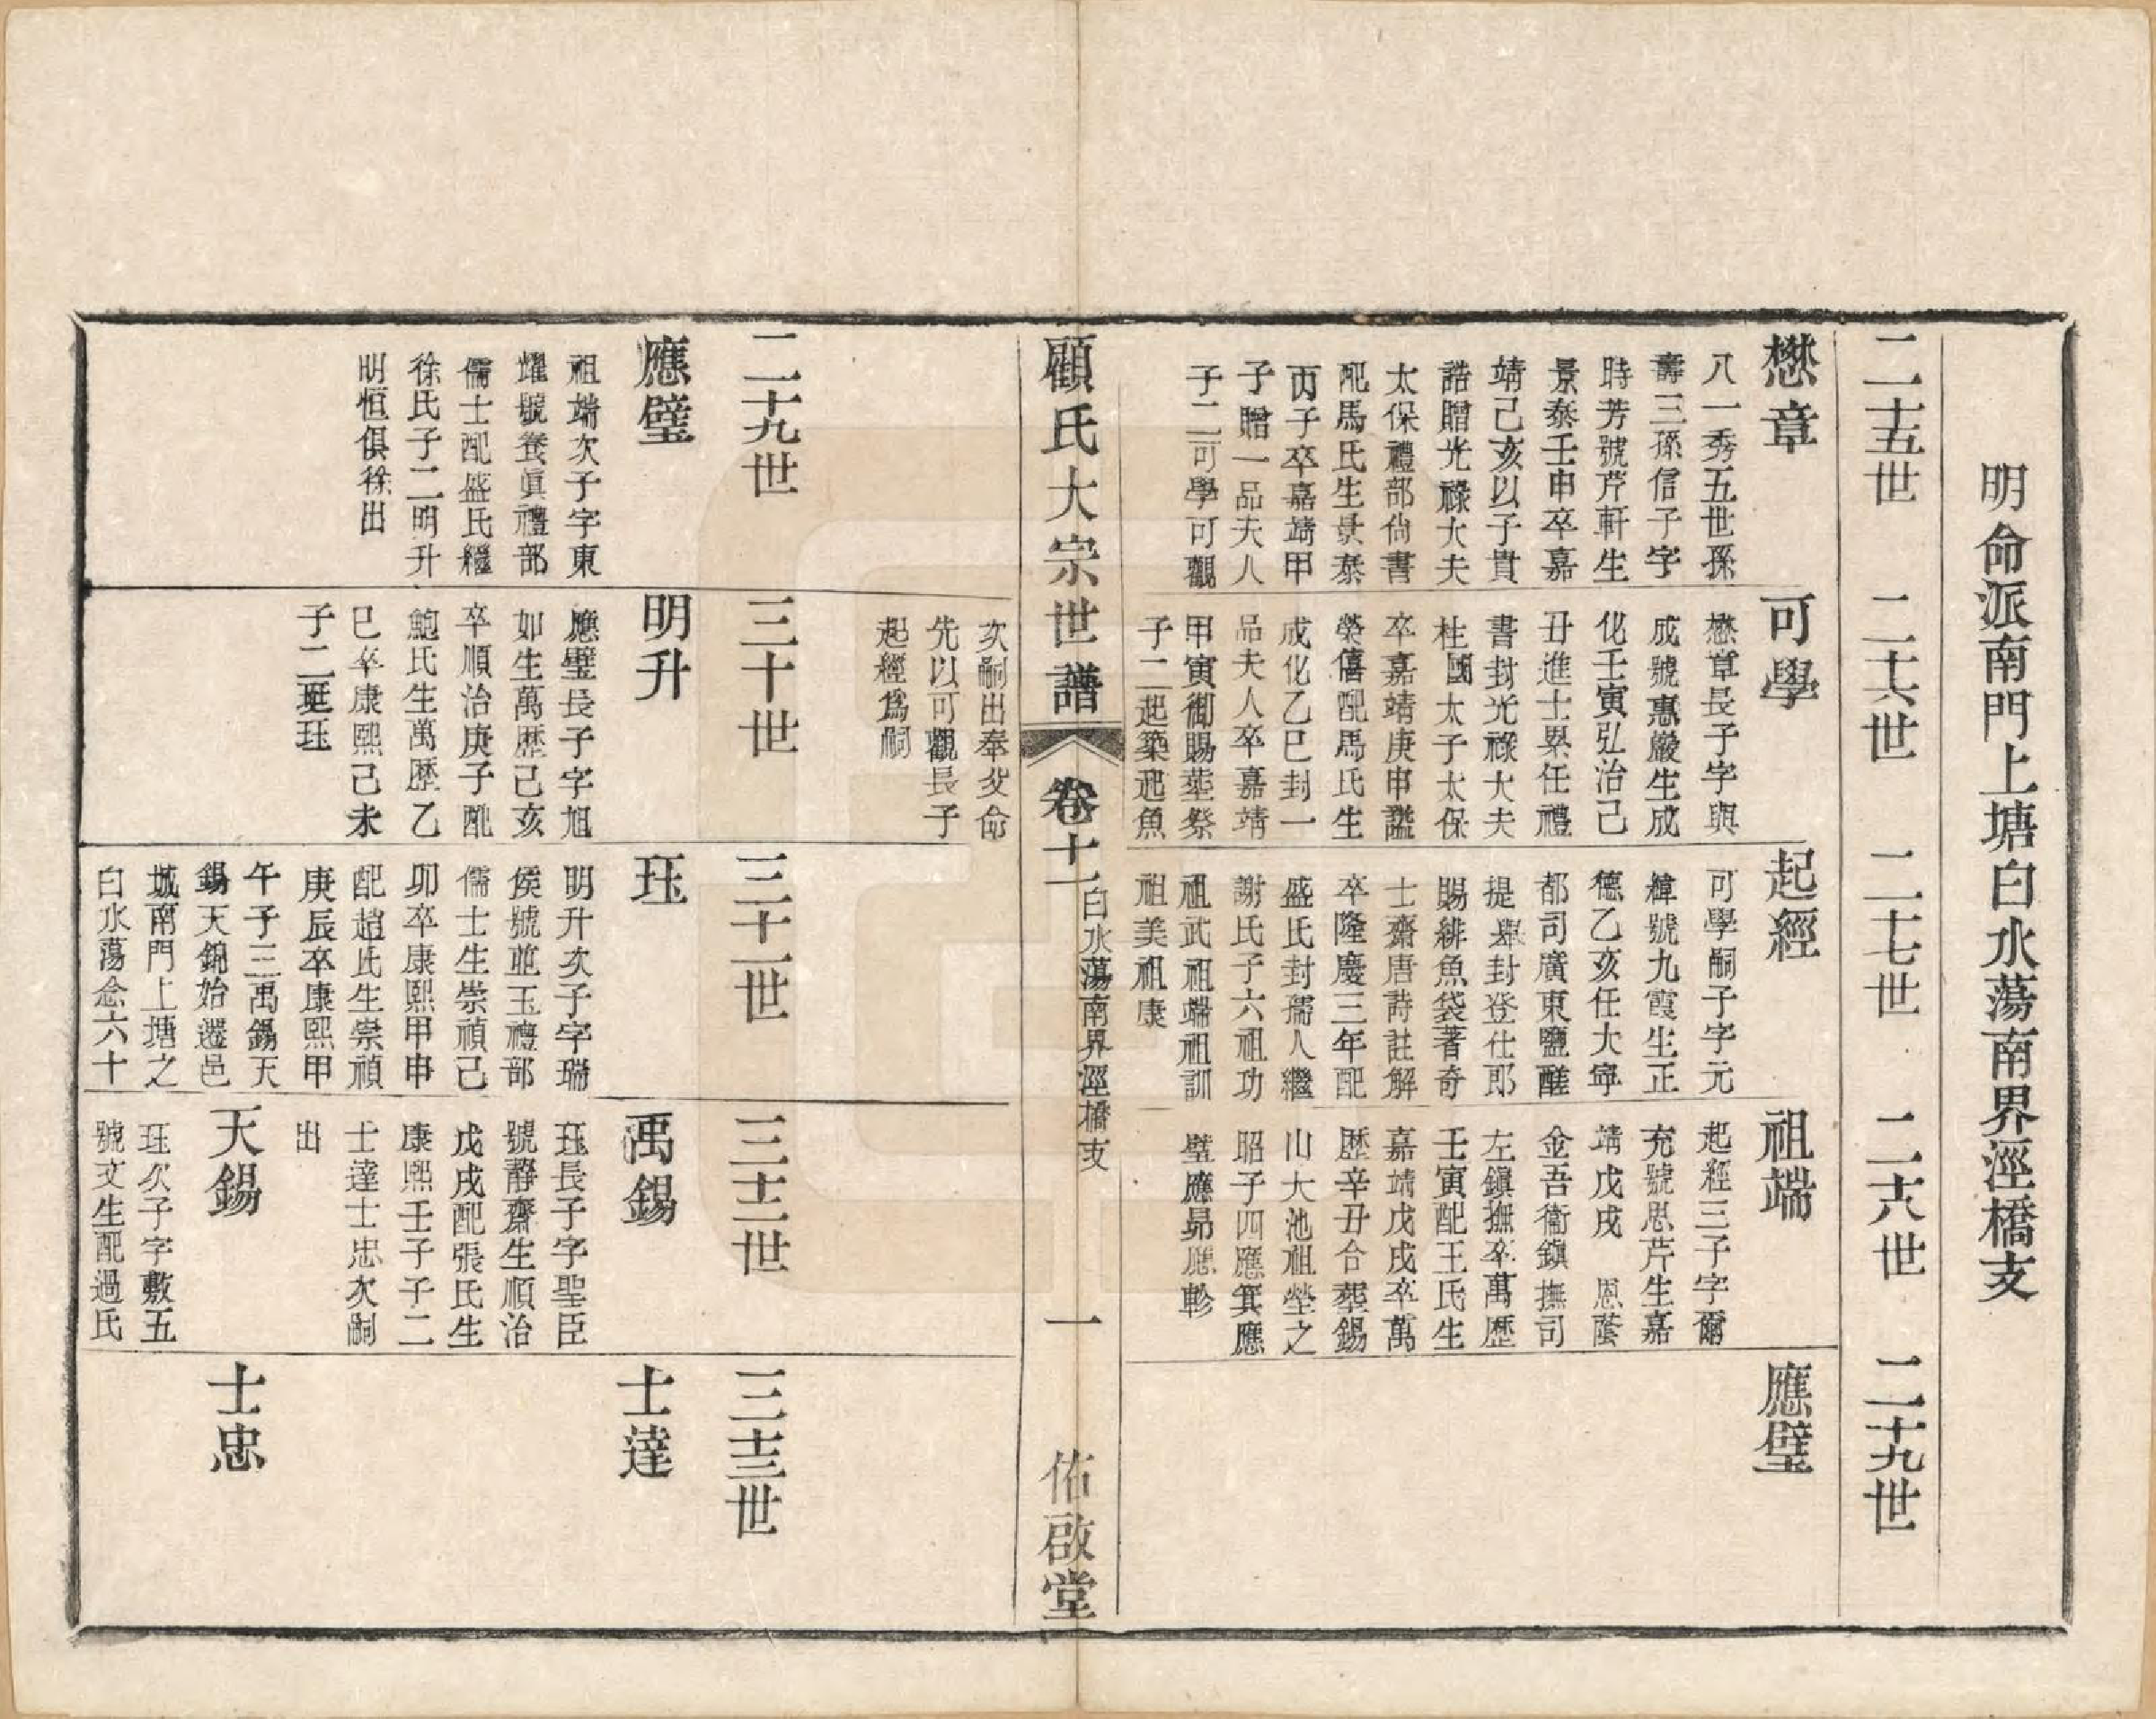 明命派南門上塘白水蕩南界涇橋支
二十五世
二十六世
二十七世
二十八世
二十九世
懋章
八一秀五世孫
壽三孫信子字
時芳號芹軒生
景泰壬申卒嘉
靖己亥以子貴
誥贈光祿大夫
太保禮部尚書
配馬氏生景泰
丙子卒嘉靖甲
子贈一品夫人
子二可學可觀
可學
懋章長子字與
成號惠巖生成
化壬寅弘治己
丑進士累任禮
書封光祿大夫
柱國太子太保
卒嘉靖庚申謚
榮僖配馬氏生
成化乙巳封一
品夫人卒嘉靖
甲寅御賜塟祭
子二起築起魚
次嗣出奉父命
先以可觀長子
起經爲嗣
起經
可學嗣子字元
緯號九霞生正
德乙亥任大寧
都司廣東鹽醝
提舉封登仕郎
賜緋魚袋著奇
士齋唐詩註解
卒隆慶三年配
盛氏封孺人繼
謝氏子六祖功
祖武祖端祖訓
祖美祖康
祖端
起經三子字爾
充號思芹生嘉
靖戊戌 恩蔭
金吾衞鎭撫司
左鎭撫卒萬歷
壬寅配王氏生
嘉靖戊戌卒萬
歷辛丑合塟錫
山大池祖塋之
昭子四應箕應
璧應昴應軫
應璧
顧氏大宗世譜
卷十一
白水蕩南界涇橋支
一
佑啟堂
二十九世
三十世
三十一世
三十二世
三十三世
應璧
祖端次子字東
燿號養眞禮部
儒士配盛氏繼
徐氏子二明升
明恒俱徐出
明升
應璧長子字旭
如生萬歷己亥
卒順治庚子配
鮑氏生萬歷乙
巳卒康熙己未
子二珽珏
珏
明升次子字瑞
侯號莚玉禮部
儒士生崇禎己
卯卒康熙甲申
配趙氏生崇禎
庚辰卒康熙甲
午子三禹錫天
錫天錦始遷邑
城南門上塘之
白水蕩念六十
禹錫
珏長子字聖臣
號靜齋生順治
戊戌配張氏生
康熙壬子子二
士達士忠次嗣
出
天錫
珏次子字敷五
號文生配過氏
士達
士忠